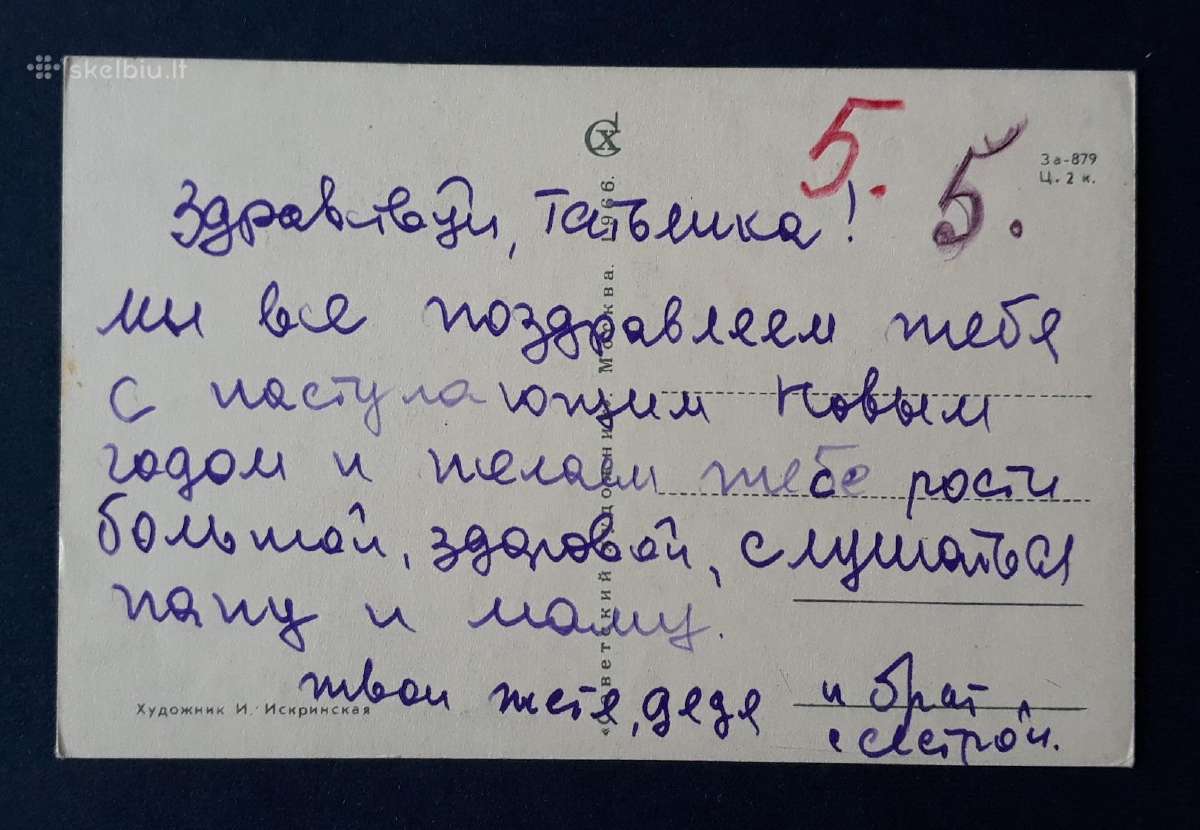 skelbiu.lt
СХ
5.
5.
За-879
Ц. 2 к.
Здравствуй, Татьянка!
мы все поздравляем тебя
с наступающим Новым
годом и желаем тебе рости
большой, здоровой, слушаться
папу и маму.
твои тётя, дядя и брат
с сестрой.
Художник И. Искринская
«Советский художник». Москва. 1966.